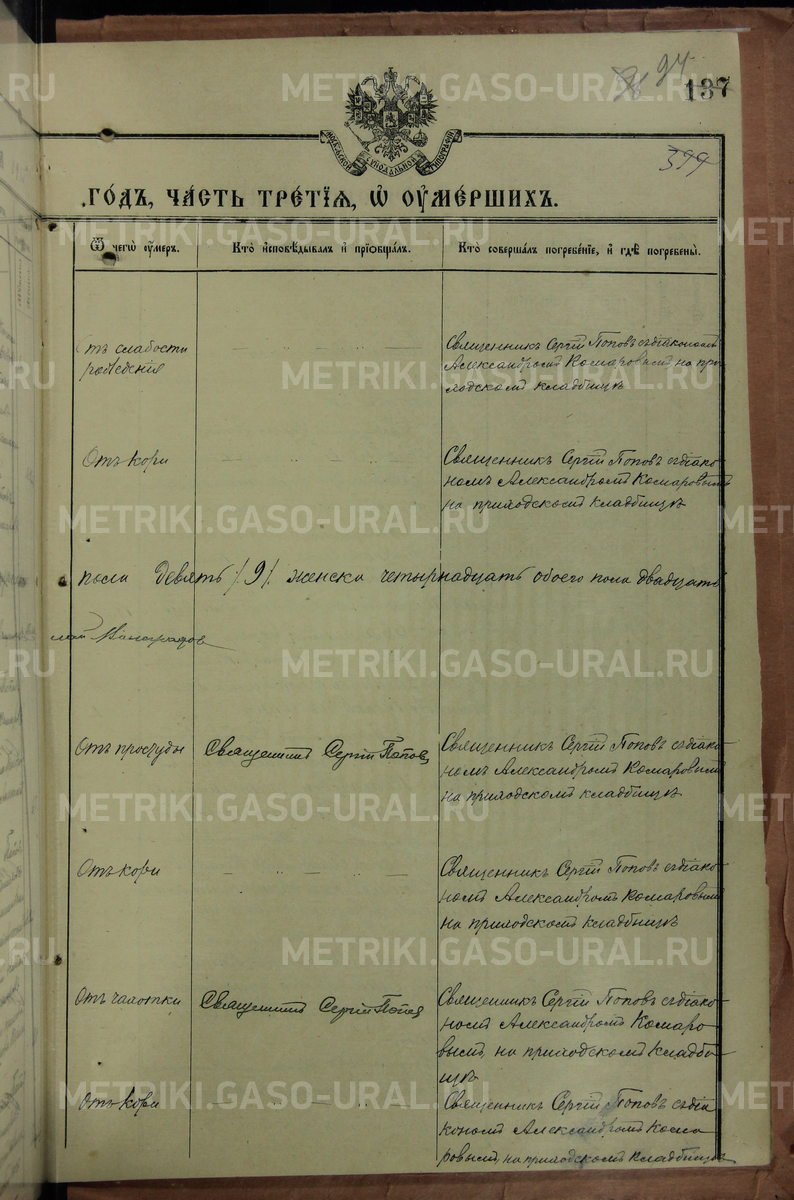 94
137
399
МОСКОВСКОЙ СѴНОДАЛЬНОЙ ТИПОГРАФІИ
.ГО́ДЪ, ЧА́СТЬ ТРЕ́ТІѦ, Ѡ҆ ОУ҆МЕ́РШИХЪ.
Ѿ чегѡ̀ оу҆́меръ.
Кто̀ и҆сповѣ́дывалъ и҆ прїѡбща́лъ.
Кто̀ соверша́лъ погребе́нїе, и҆ гдѣ̀ погребены̀.
Отъ слабости
рожденія
Священникъ Сергій Поповъ съ діакономъ
Александромъ Комаровымъ на при-
ходскомъ кладбищѣ
Отъ кори
Священникъ Сергій Поповъ съ діако-
номъ Александромъ Комаровымъ
на приходскомъ кладбищѣ
пола девять /9/ женска четырнадцать обоего пола двадцать
Виноградов
Отъ простуды
Священникъ Сергій Поповъ
Священникъ Сергій Поповъ съ діако-
номъ Александромъ Комаровымъ
на приходскомъ кладбищѣ
Отъ кори
Священникъ Сергій Поповъ съ діако-
номъ Александромъ Комаровымъ
на приходскомъ кладбищѣ
Отъ чахотки
Священникъ Сергій Поповъ
Священникъ Сергій Поповъ съ діако-
номъ Александромъ Комаро-
вымъ, на приходскомъ кладби-
щѣ
Отъ кори
Священникъ Сергій Поповъ съ діа-
кономъ Александромъ Кома-
ровымъ, на приходскомъ кладбищѣ
METRIKI.GASO-URAL.RU